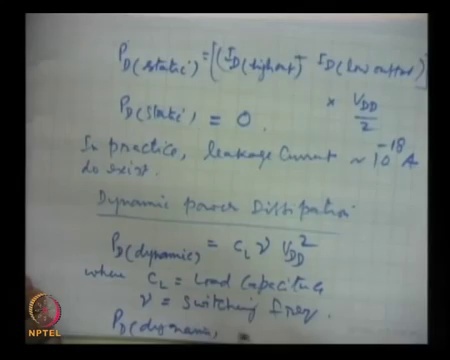 P_D(static) = [(I_D(highout) + I_D(low output)]
× V_DD/2
P_D(static) = 0.
In practice, leakage Current ~ 10^-18 A
do exist.
Dynamic power Dissipation
P_D(dynamic) = C_L ν V_DD^2
where C_L = Load Capacitance
ν = Switching freq.
P_D(dynamic,
NPTEL